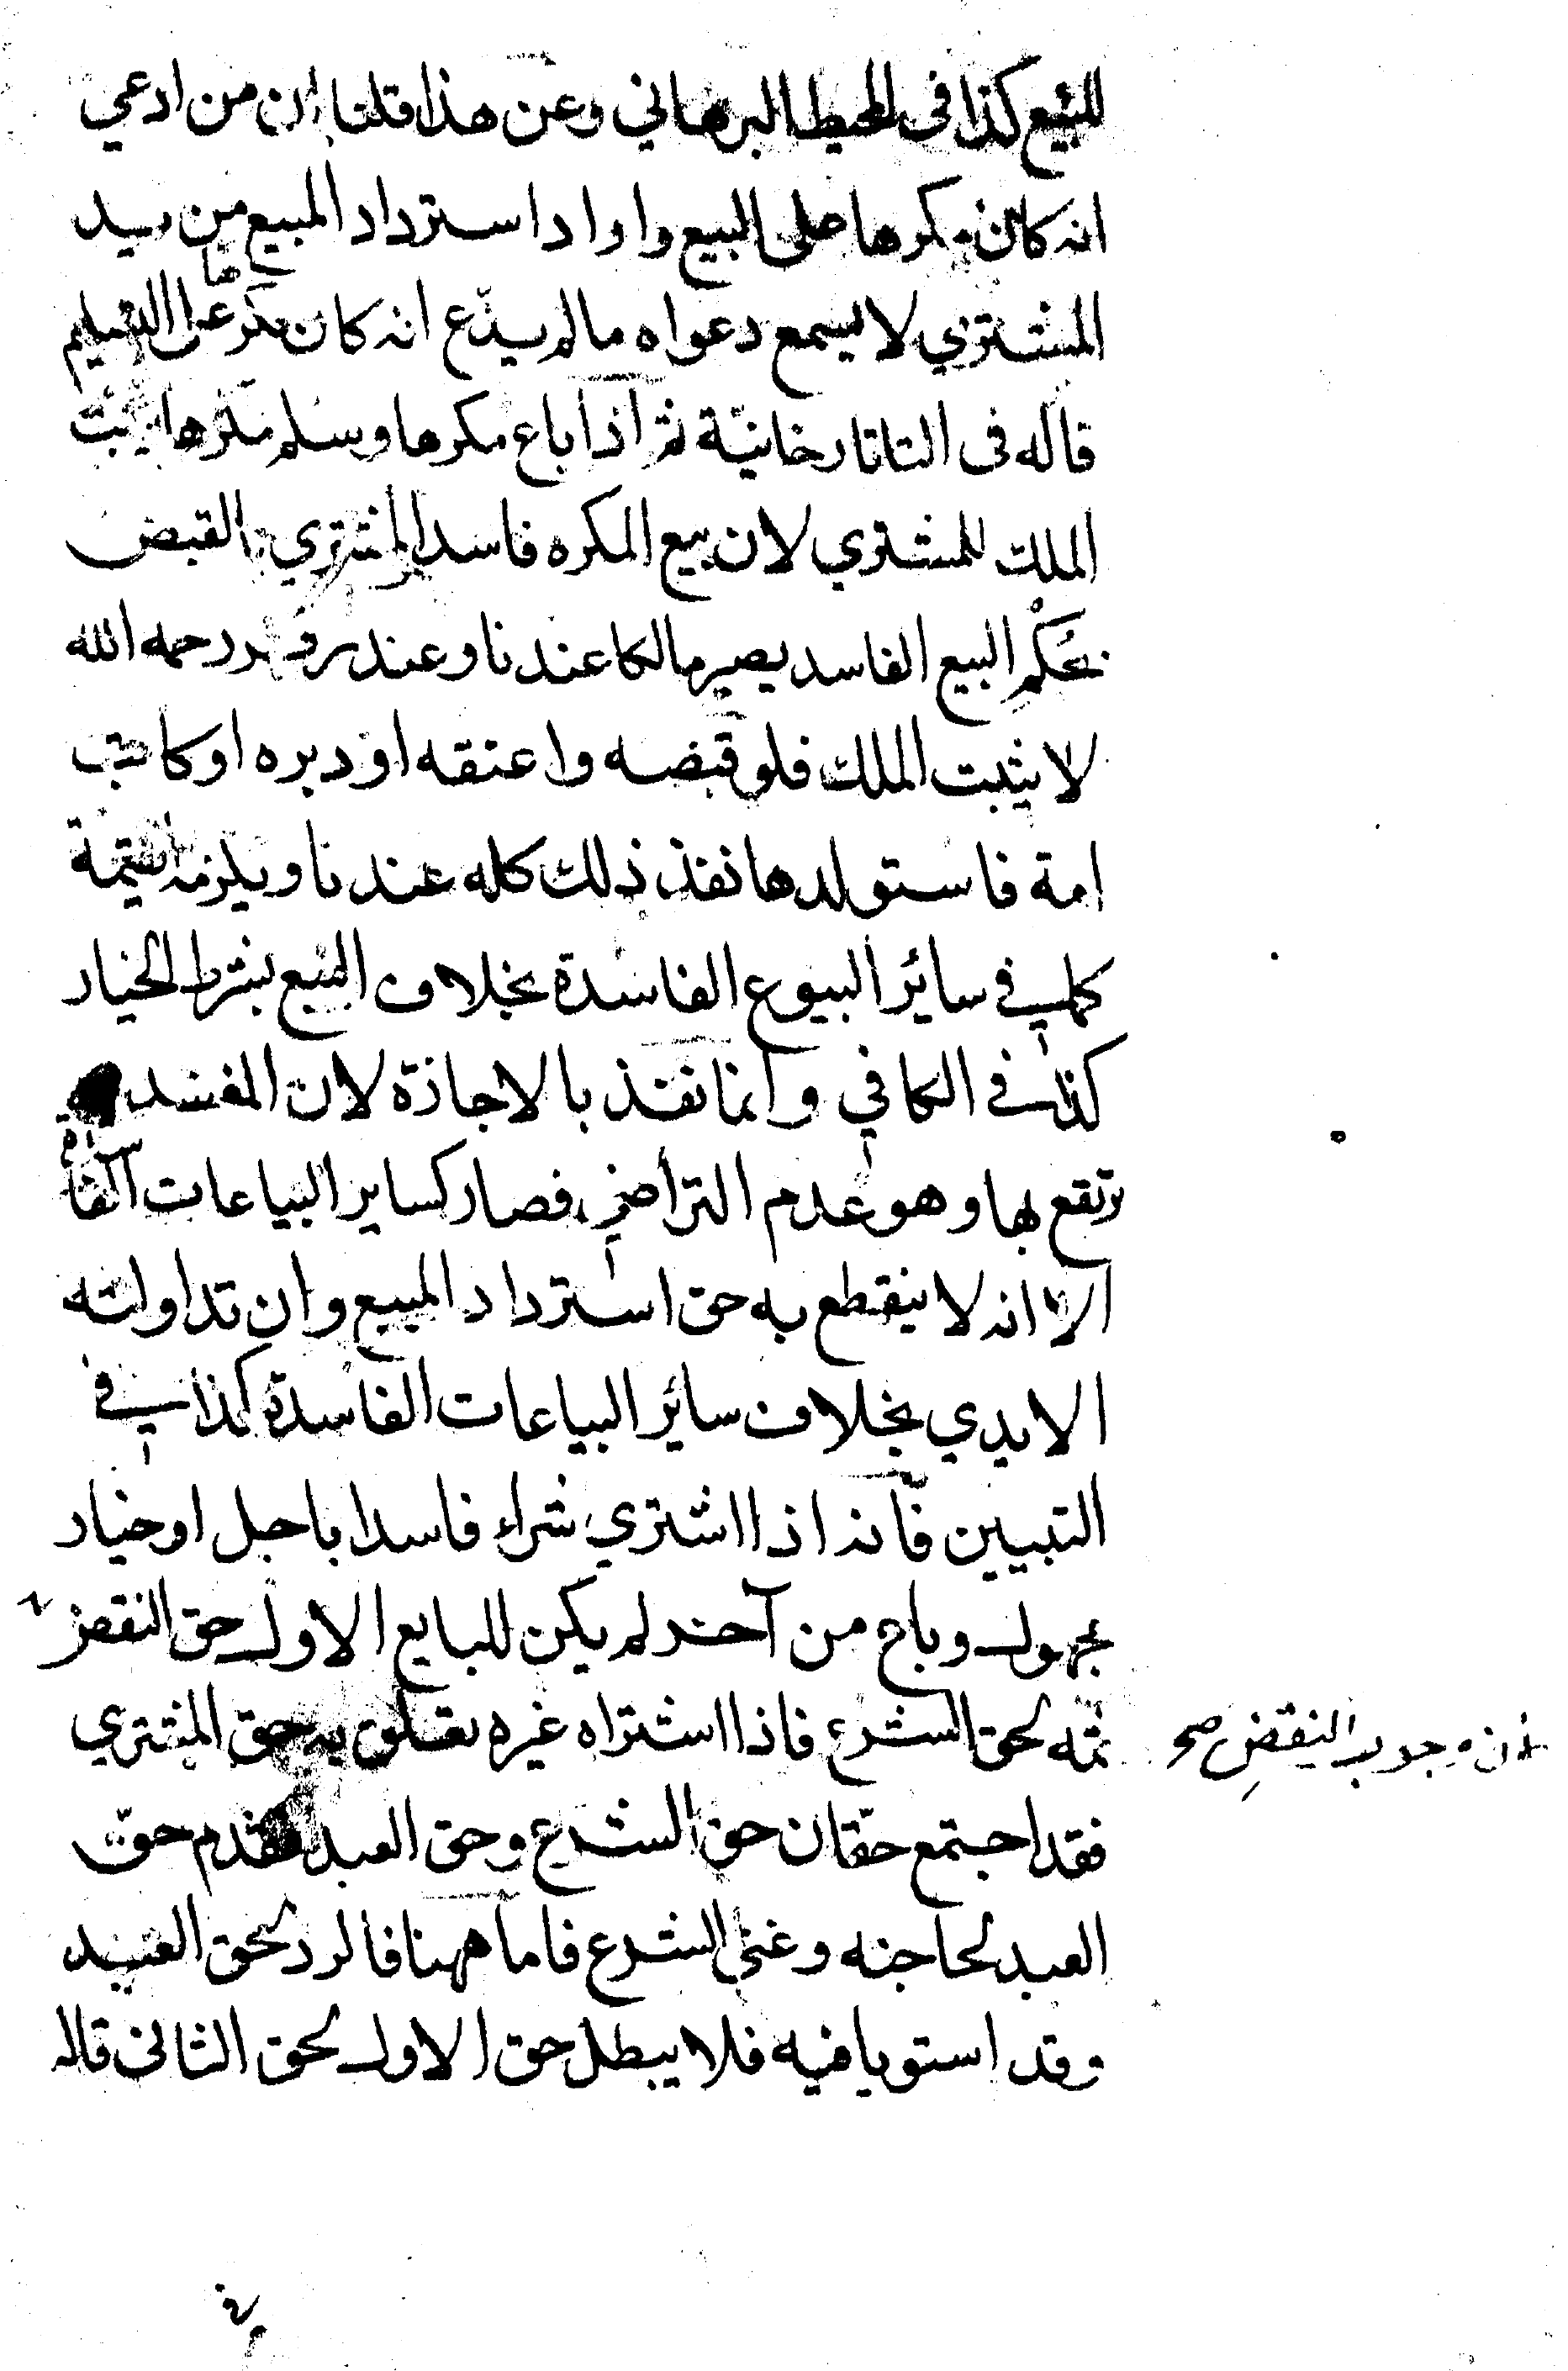 للبيع كذا في المحيط البرهاني وعن هذا قلنا ان من ادعي
انه كان مكرها على البيع واراد استرداد المبيع من يد
المشتري لا يسمع دعواه ما لم يدّع انه كان مكرها على التسليم
قاله في التاتارخانية ثم اذا باع مكرها وسلم مكرها يثبت
الملك للمشتري لان بيع المكره فاسد المشتري بالقبض
بحكم البيع الفاسد يصير مالكا عندنا وعند زفر رحمه الله
لا يثبت الملك فلو قبضه واعتقه او دبره او كاتب
امة فاستولدها نفذ ذلك كله عندنا ويلزمه القيمة
كما في سائر البيوع الفاسدة بخلاف البيع بشرط الخيار
كذا في الكافي وانما نفذ بالاجازة لان المفسد
يرتفع بها وهو عدم التراضي فصار كساير البياعات الفاسدة
الا انه لا ينقطع به حق استرداد المبيع وان تداولته
الايدي بخلاف سائر البياعات الفاسدة كذا في
التبيين فانه اذا اشتري شراء فاسدا باجل او خيار
مجهول وباع من آخر لم يكن للبايع الاول حق النقض
ثمه لحق الشرع فاذا اشتراه غيره تعلق به حق المشتري
لان وجوب النقض صح
فقد اجتمع حقان حق الشرع وحق العبد فقدم حق
العبد لحاجته وغنى الشرع فاما ههنا فالرد لحق العبد
وقد استويا فيه فلا يبطل حق الاول لحق الثاني قاله
في